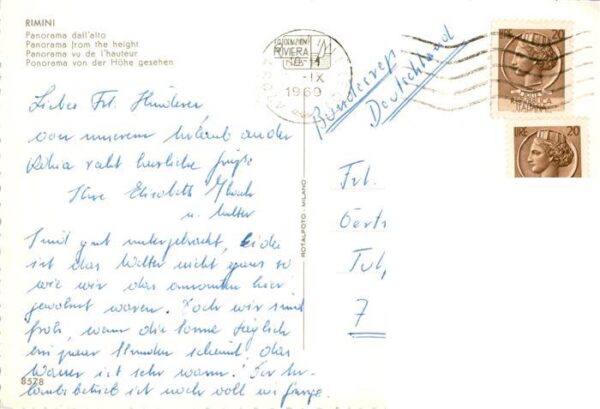 RIMINI
Panorama dall'alto
Panorama from the height
Panorama vu de l'hauteur
Ponorama von der Höhe gesehen
RIVIERA
18-11
-IX
1969
20
ITALIANA
LIRE 20
Bundesrep
Deutschland
Liebes Frl.
von unserem Urlaub an der
Adria recht herzliche Grüße
Ihre Elisabeth
u. Mutter
Sind gut untergebracht, leider
ist das Wetter nicht ganz so
wie wir das ansonsten hier
gewohnt waren. Doch wir sind
froh, wenn die Sonne täglich
ein paar Stunden scheint, das
Wasser ist sehr warm. Der Ur-
laubsbetrieb ist noch voll im Gange.
Frl.
7
ROTALFOTO - MILANO
8578